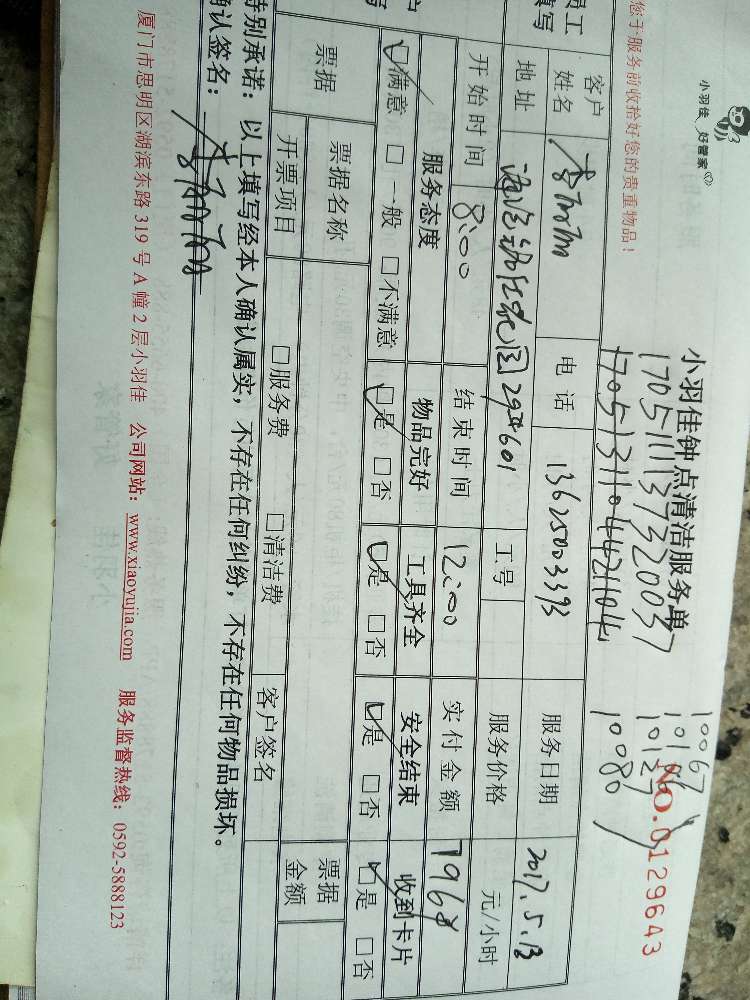 小羽佳 好管家
您于服务前收拾好您的贵重物品！
小羽佳钟点清洁服务单
NO.0129643
1705111137320037
10067
10080
员工
填写
客户
姓名
电话 13625003393
服务日期 2017.5.13
地址
29#601
工号
服务价格 元/小时
开始时间 8:00
结束时间 12:00
实付金额 796
服务态度 物品完好 工具齐全 安全结束 收到卡片
☑满意 □一般 □不满意 ☑是 □否 ☑是 □否 ☑是 □否 ☑是 □否
票据 票据名称 票据金额
开票项目 □服务费 □清洁费 客户签名
特别承诺：以上填写经本人确认属实，不存在任何纠纷，不存在任何物品损坏。
确认签名：
厦门市思明区湖滨东路 319 号 A 幢 2 层小羽佳 公司网站：www.xiaoyujia.com 服务监督热线：0592-5888123